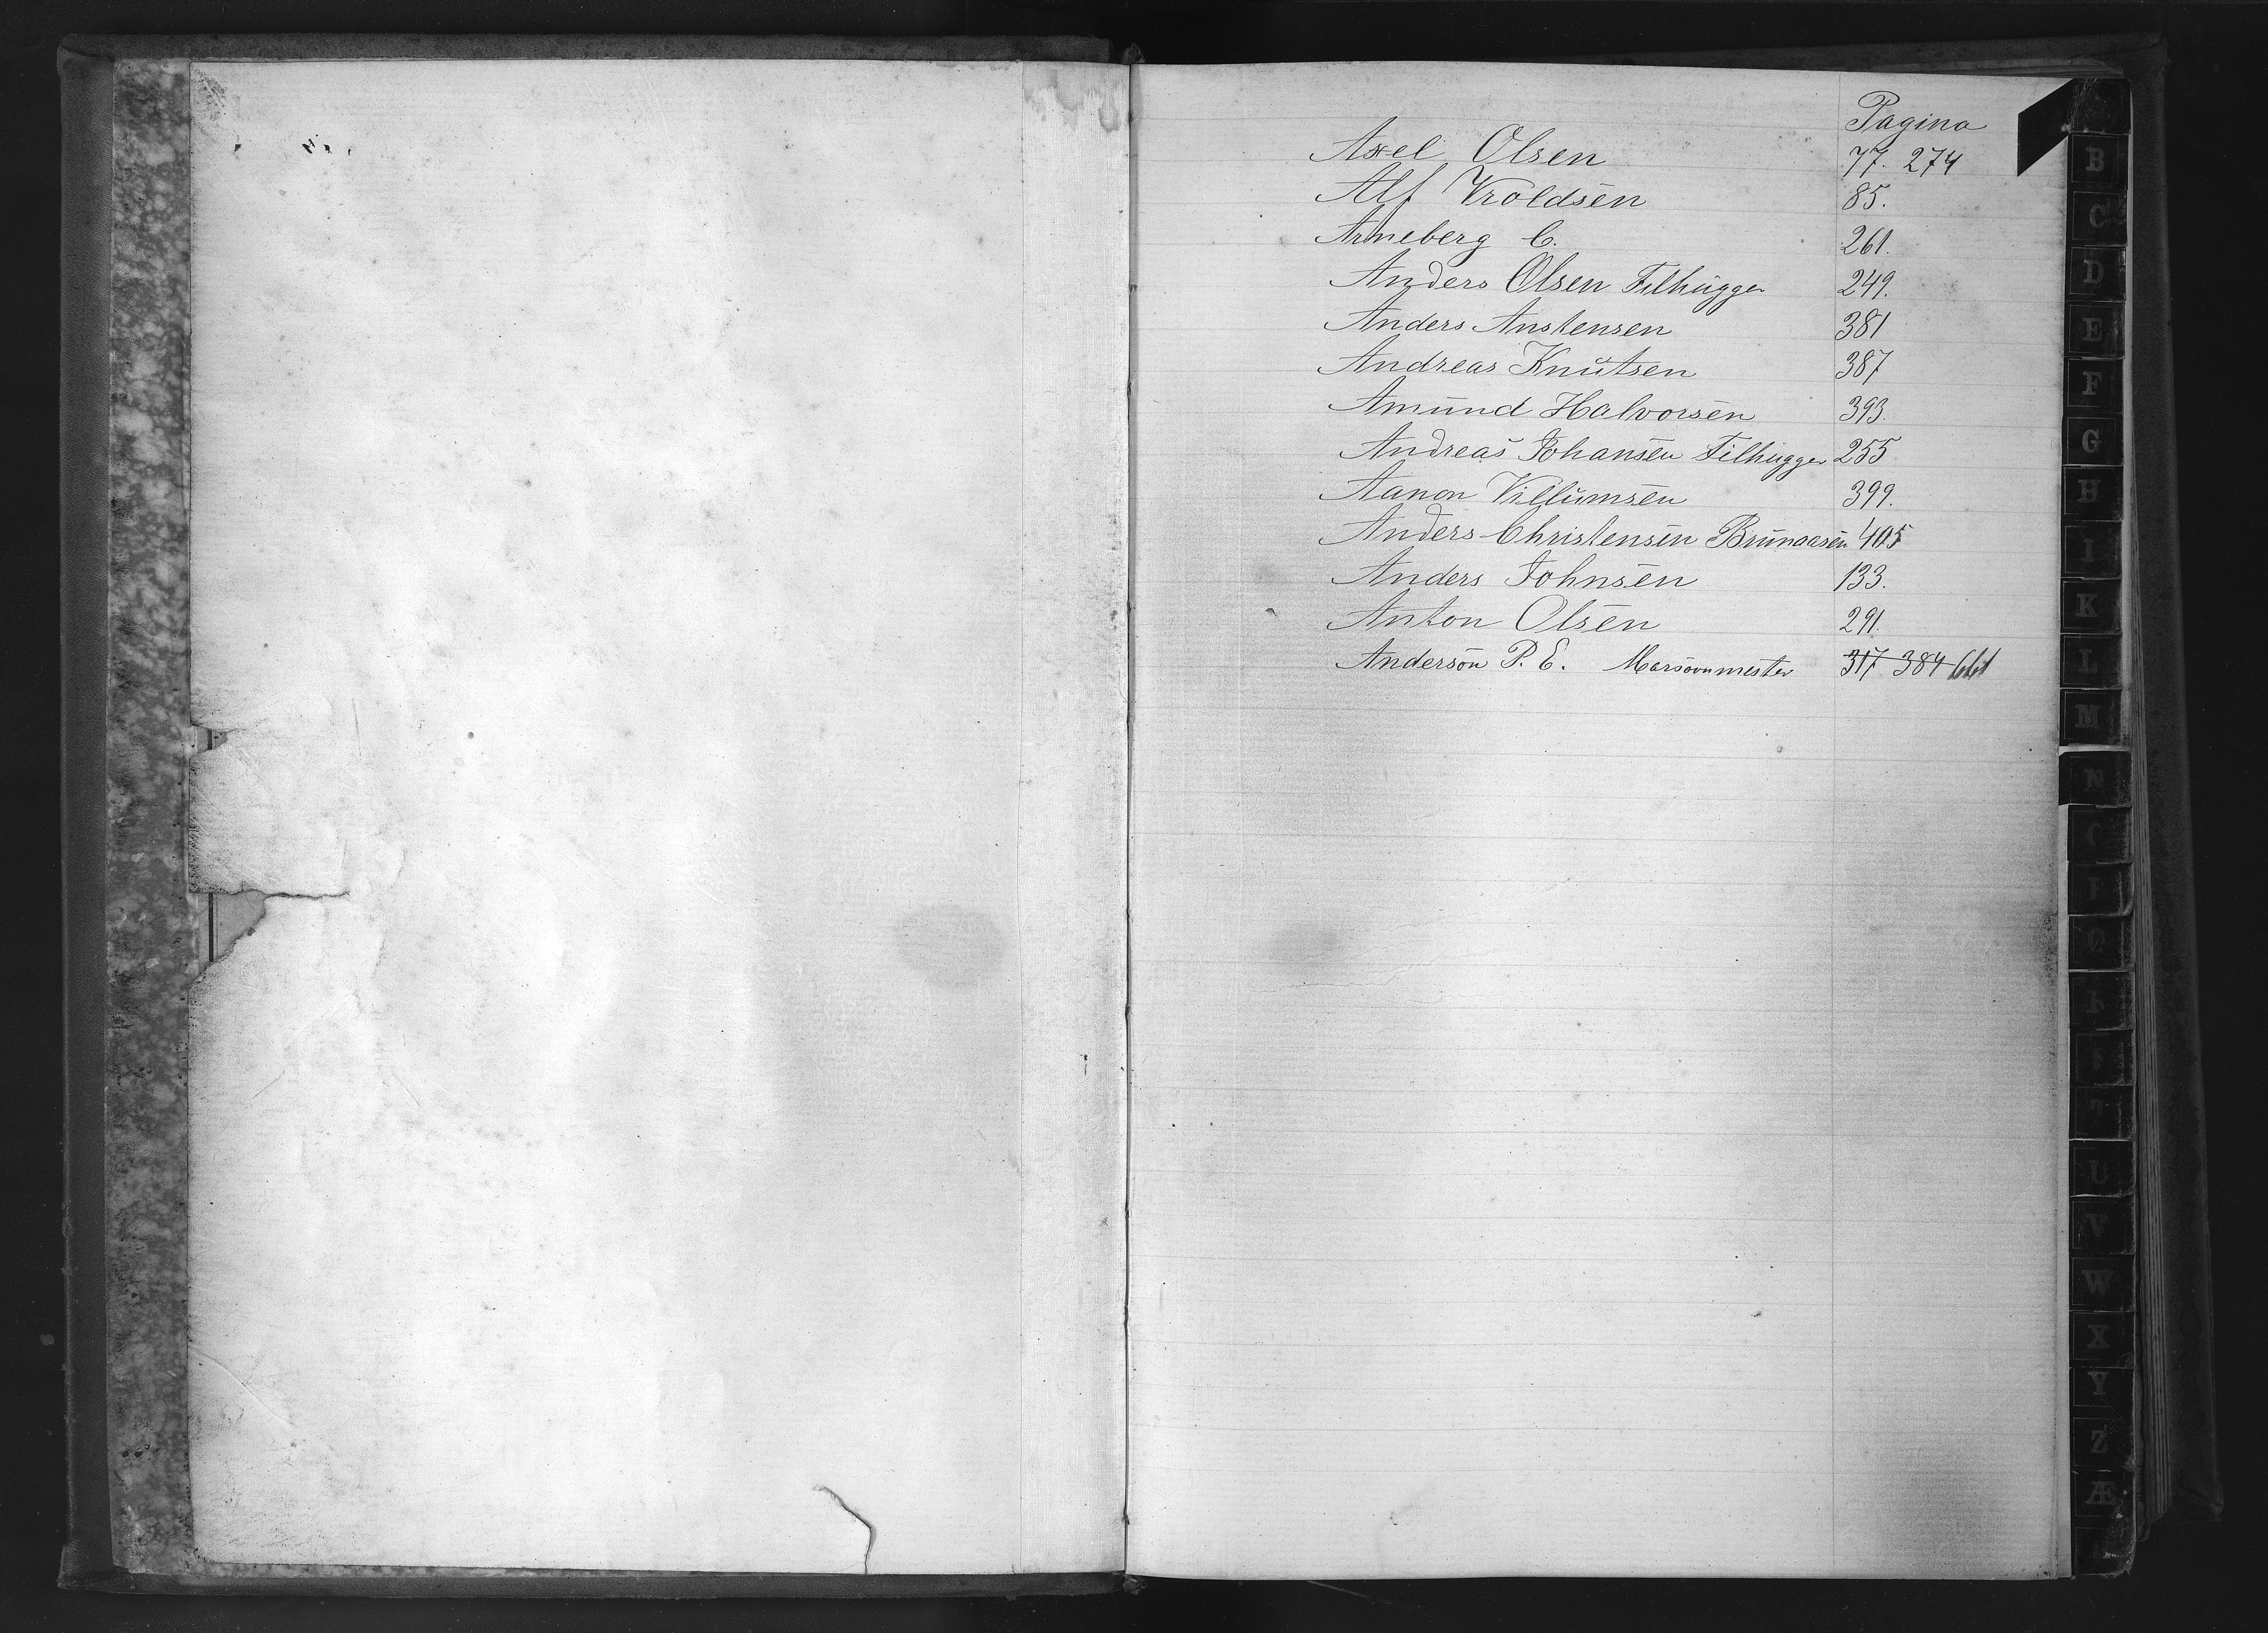 Pagina
Axel Olsen 77. 274
Alf Vroldsen 85.
Arneberg C. 261.
Anders Olsen Filhugger 249.
Anders Anstensen 381
Andreas Knutsen 387
Amund Halvorsen 393.
Andreas Johansen Filhugger 255
Aanon Villumsen 399.
Anders Christensen Brunaasen 405
Anders Johnsen 133.
Anton Olsen 291.
Anderson P. E. Marsovnmester 317 384 661
B
C
D
E
F
G
H
I
K
L
M
N
U
V
W
X
Y
Z
Æ